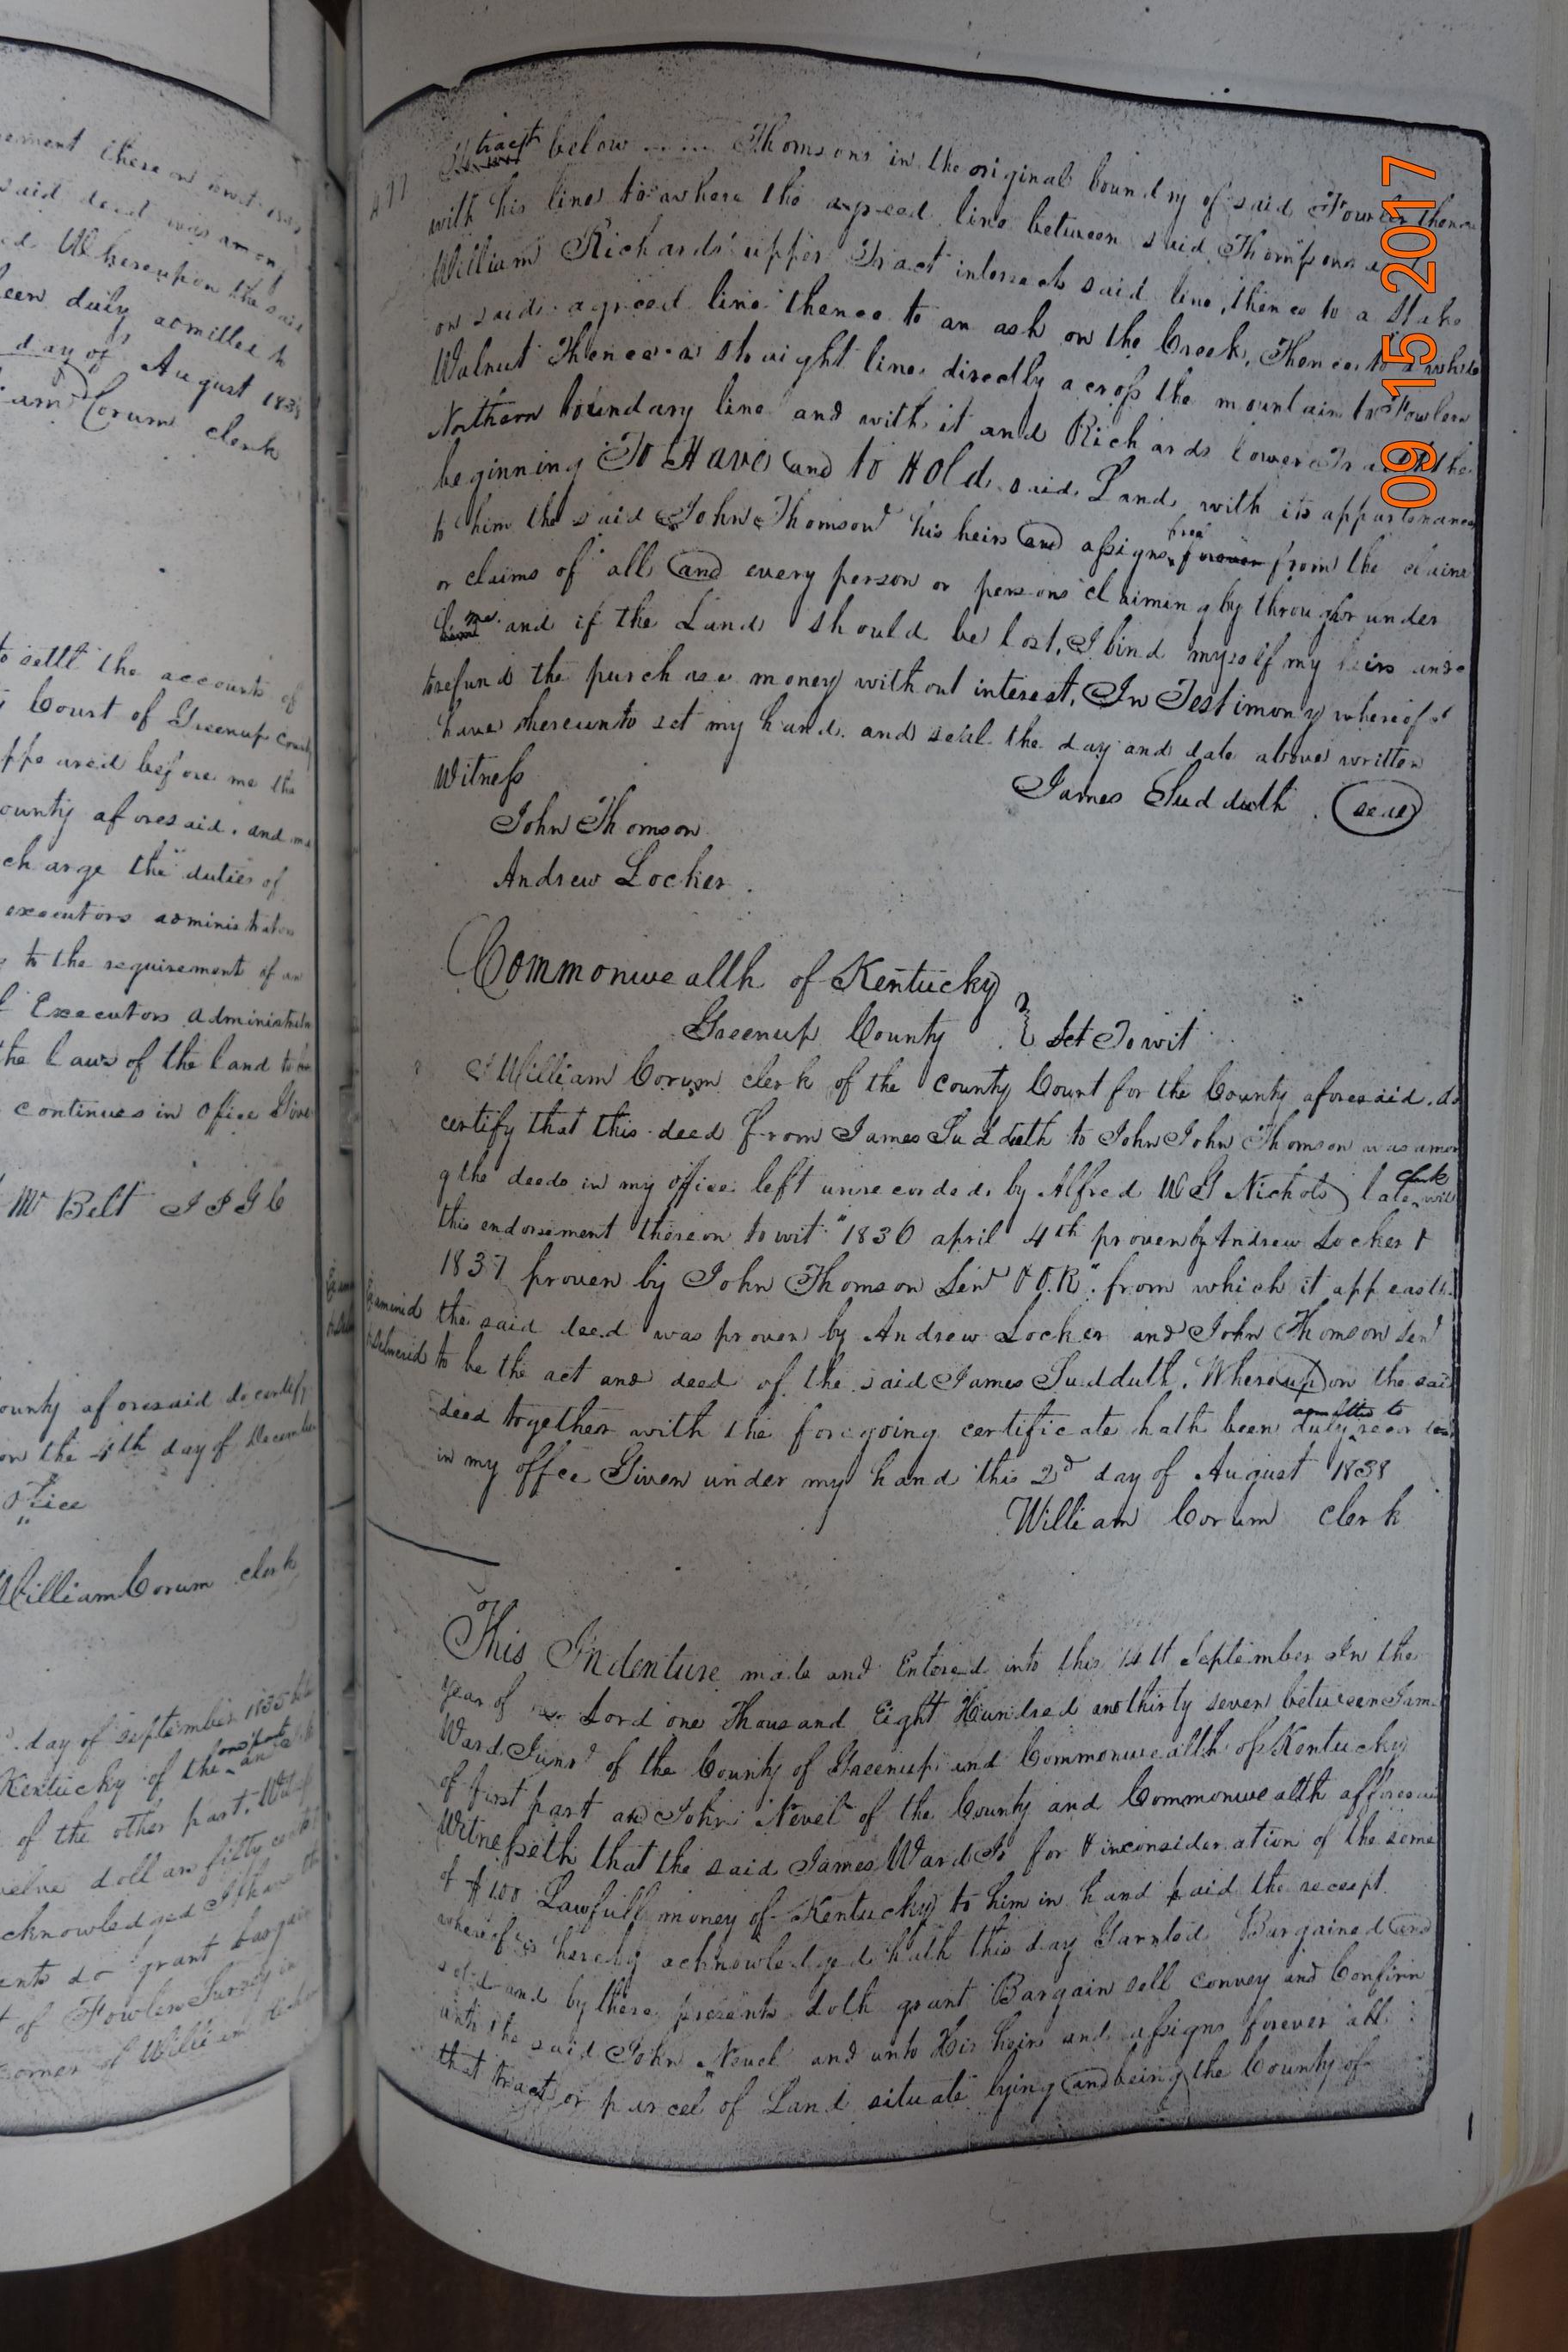 ement there on towit
said deed was among
ed Whereupon the said
een duly admitted to
day of August 1838
Corum clerk
to settl the accounts of
Court of Greenup County
ppeared before me the
ounty aforesaid. and
charge the duties of
executors administrators
to the requirement of an
Executors Administrators
the laws of the land to
continues in Ofice Give
Mr Belt J P G C
ounty aforesaid do certify
on the 4th day of December
office
William Corum clerk
day of September 1835
Kentucky of the one part and
of the other part. Wit
welve dollars fifty cents
cknowledged I have
ents do grant bargain
t of Fowlers Survey in
corner of William
tract below Thomsons in the original boundry of said Fowler thence
with his line to where the agreed line between said Thompsons
William Richards upper Tract intersects said line, thence to a Stake
on said agreed line thence to an ash on the Creek, Thence to a white
Walnut Thence a straight line directly across the mountain to Fowlers
Northern boundary line and with it and Richards lower Tract to the
beginning To Have and to Hold said Land with its appurtenances
to him the said John Thomson his heirs and assigns free forever from the claim
or claims of all and every person or persons claiming by through or under
me and if the Land should be lost, I bind myself my heirs
to refund the purchase money without interest, In Testimony whereof I
have hereunto set my hand and seal the day and date above written
Witness
James Sudduth (seal)
John Thomson
Andrew Locker
Commonwealth of Kentucky
Greenup County } Sct Towit
I William Corum clerk of the County Court for the County aforesaid. do
certify that this deed from James Sudduth to John John Thomson was amon
g the deeds in my office left unrecorded by Alfred W G Nichols late clerk with
this endorsement thereon towit "1836 april 4th proven by Andrew Locker &
1837 proven by John Thomson Senr & O.R". from which it appeasth
Examined the said deed was proven by Andrew Locker and John Thomson Senr
& delivered to be the act and deed of the said James Sudduth. Whereupon the said
deed together with the foregoing certificate hath been duly admitted to record
in my offce Given under my hand this 2d day of August 1838
William Corum Clerk
This Indenture made and Entered into this September In the
year of our Lord one Thousand Eight Hundred and thirty seven between Jam
Ward Junr of the County of Greenup and Commonwealth of Kentucky
of first part and John Nevel of the County and Commonwealth afforesaid
Witnesseth that the said James Ward Jr for & inconsideration of the some
of $100 Lawfull money of Kentucky to him in hand paid the receept
whereof is hereby acknowledged hath this day Garnted Bargained and
sold and by these presents doth grant Bargain sell convey and Confirm
unto the said John Nevel and unto His heirs and assigns forever all
that tract or parcel of Land situate lying and being the County of
09 15 2017